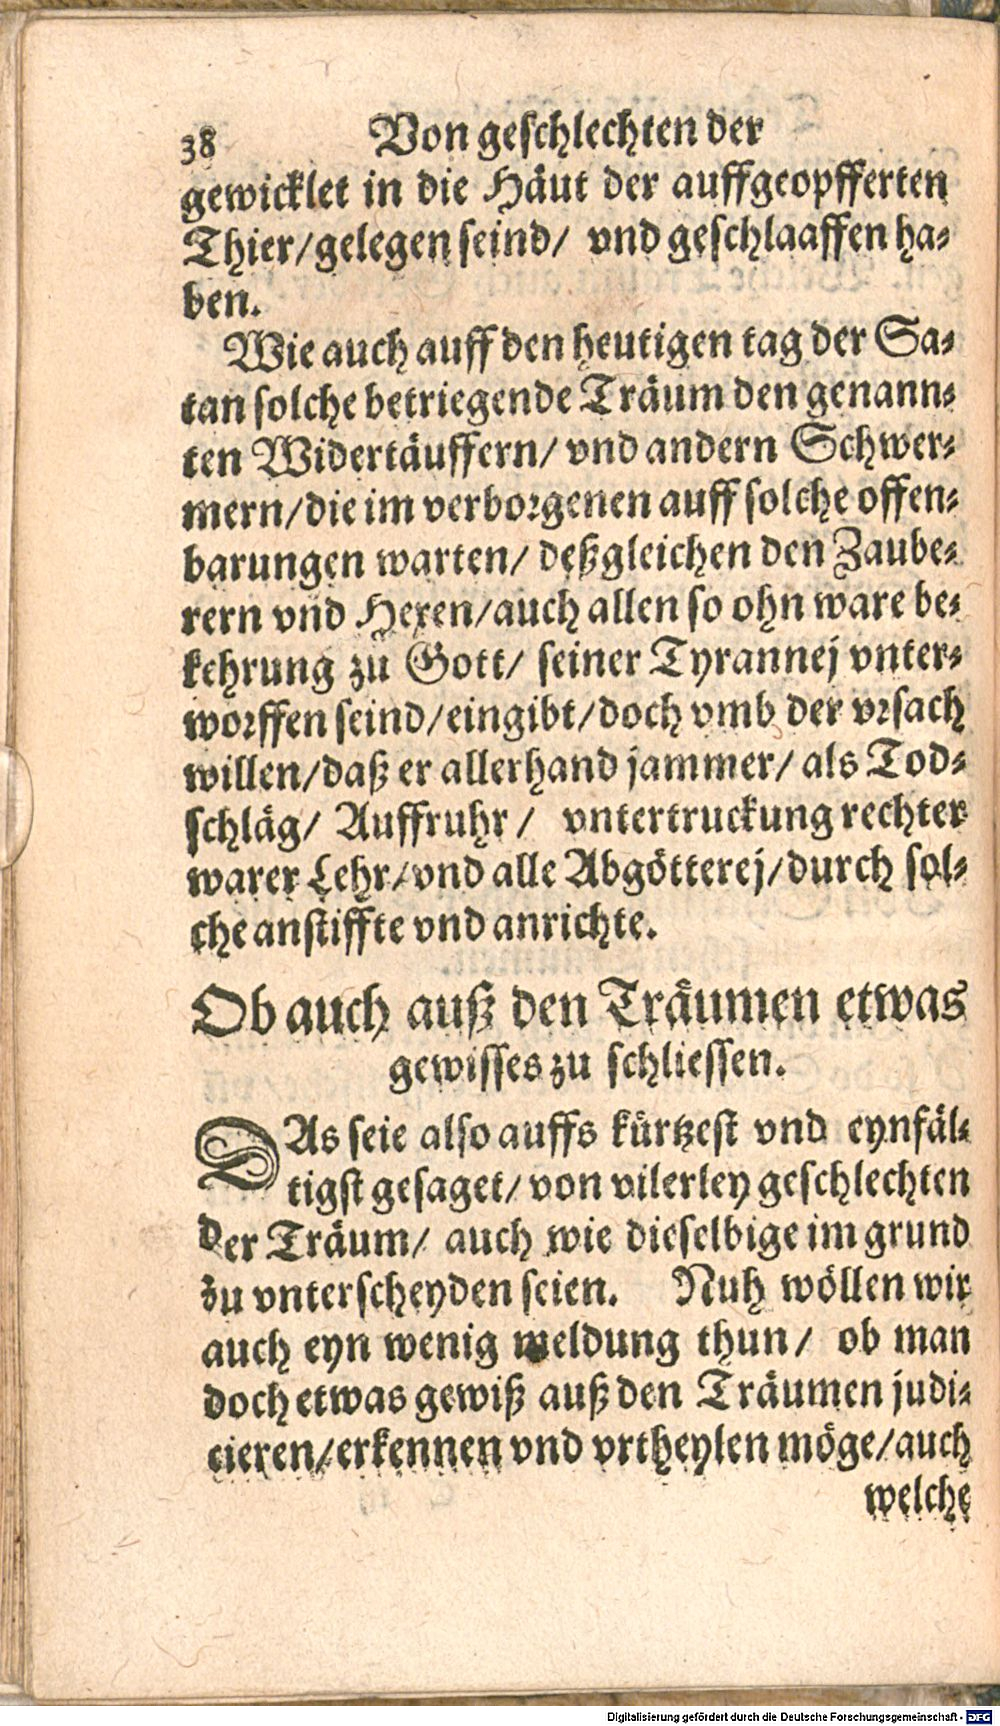 38 Von geschlechten der
gewicklet in die Häut der auffgeopfferten
Thier/gelegen seind/ vnd geschlaaffen ha-
ben.
Wie auch auff den heutigen tag der Sa-
tan solche betriegende Träum den genann-
ten Widertäuffern/ vnd andern Schwer-
mern/die im verborgenen auff solche offen-
barungen warten/ deßgleichen den Zaube-
rern vnd Hexen/auch allen so ohn ware be-
kehrung zu Gott/ seiner Tyrannej vnter-
worffen seind/eingibt/doch vmb der vrsach
willen/daß er allerhand jammer/ als Tod-
schläg/ Auffruhr/ vntertruckung rechter
warer Lehr/vnd alle Abgötterej/durch sol-
che anstiffte vnd anrichte.
Ob auch auß den Träumen etwas
gewisses zu schliessen.
DAs seie also auffs kürtzest vnd eynfäl-
tigst gesaget/ von vilerley geschlechten
der Träum/ auch wie dieselbige im grund
zu vnterscheyden seien. Nuh wöllen wir
auch eyn wenig meldung thun/ ob man
doch etwas gewiß auß den Träumen judi-
cieren/erkennen vnd vrtheylen möge/auch
welche
Digitalisierung gefördert durch die Deutsche Forschungsgemeinschaft - DFG